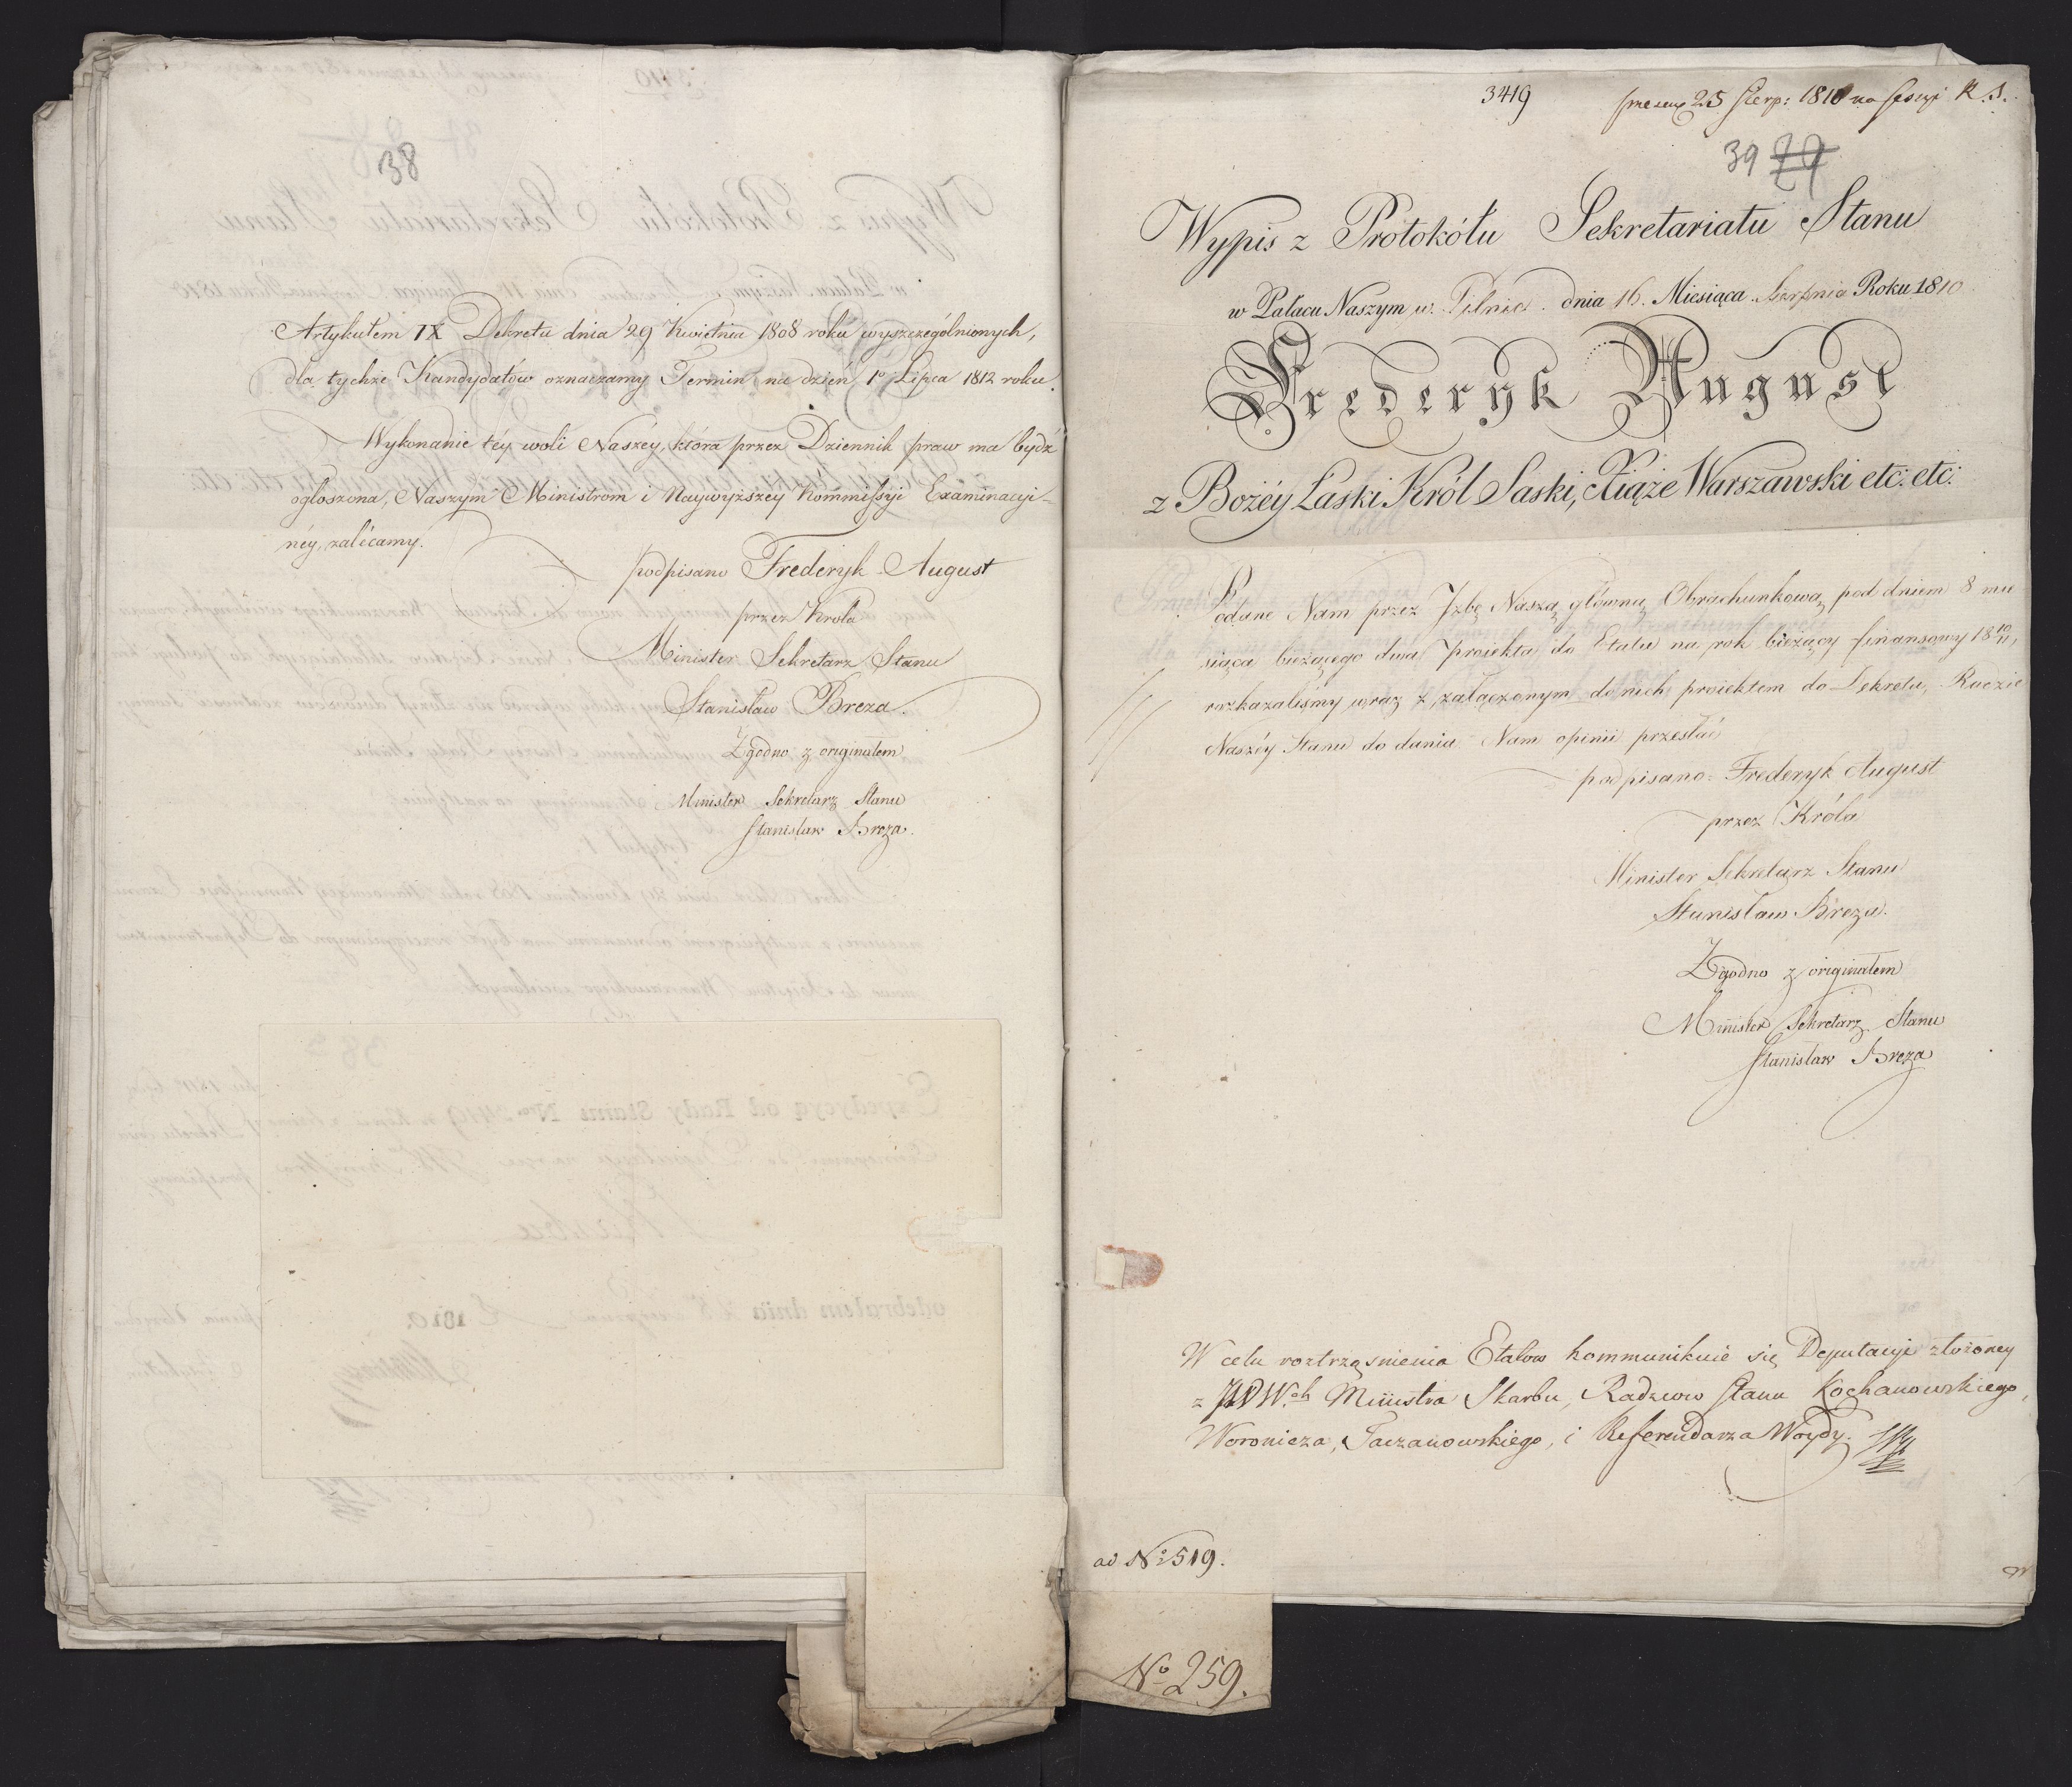 38
Artykułem IX Dekretu dnia 29 Kwietnia 1808 roku wyszczególnionych,
dla tychże Kandydatów oznaczamy Termin na dzień 1o Lipca 1812 roku.
Wykonanie téy woli Naszéy, która przez Dziennik praw ma bydź
ogłoszona, Naszym Ministrom i Naywyższey Kommissyi Examinacyi-
néy, zalécamy.
podpisano Frederyk August
przez Króla
Minister Sekretarz Stanu
Stanisław Breza.
Zgodno z originałem
Minister Sekretarz Stanu
Stanisław Breza.
3419 25 Sierp: 1810 na sessyi R. S.
39 29
Wypis z Protokółu Sekretariatu Stanu
w Pałacu Naszym w Pilnic. dnia 16. Miesiąca Sierpnia Roku 1810
Frederyk August
z Bożéy Łaski Król Saski, Xiąże Warszawski etc: etc:
Podane Nam przez Jzbę Naszą główną Obrachunkową, pod dniem 8 mie
siąca bieżącego dwa Proiekta do Etatu na rok bieżący finansowy 18 10/11,
rozkazaliśmy wraz z załączonym do nich proiektem do Dekretu, Radzie
Naszéy Stanu do dania Nam opinii przesłać
podpisano: Frederyk August
przez Króla
Minister Sekretarz Stanu
Stanisław Breza.
Zgodno z originałem
Minister Sekretarz Stanu
Stanisław Breza
W celu roztrząsnienia Etatow kommunikuie się Deputacyi złożoney
z JWWch Ministra Skarbu, Radzcow Stanu Kochanowskiego,
Woronicza, Taczanowskiego, i Referendarza Woydy.
ad No 519.
No 259.